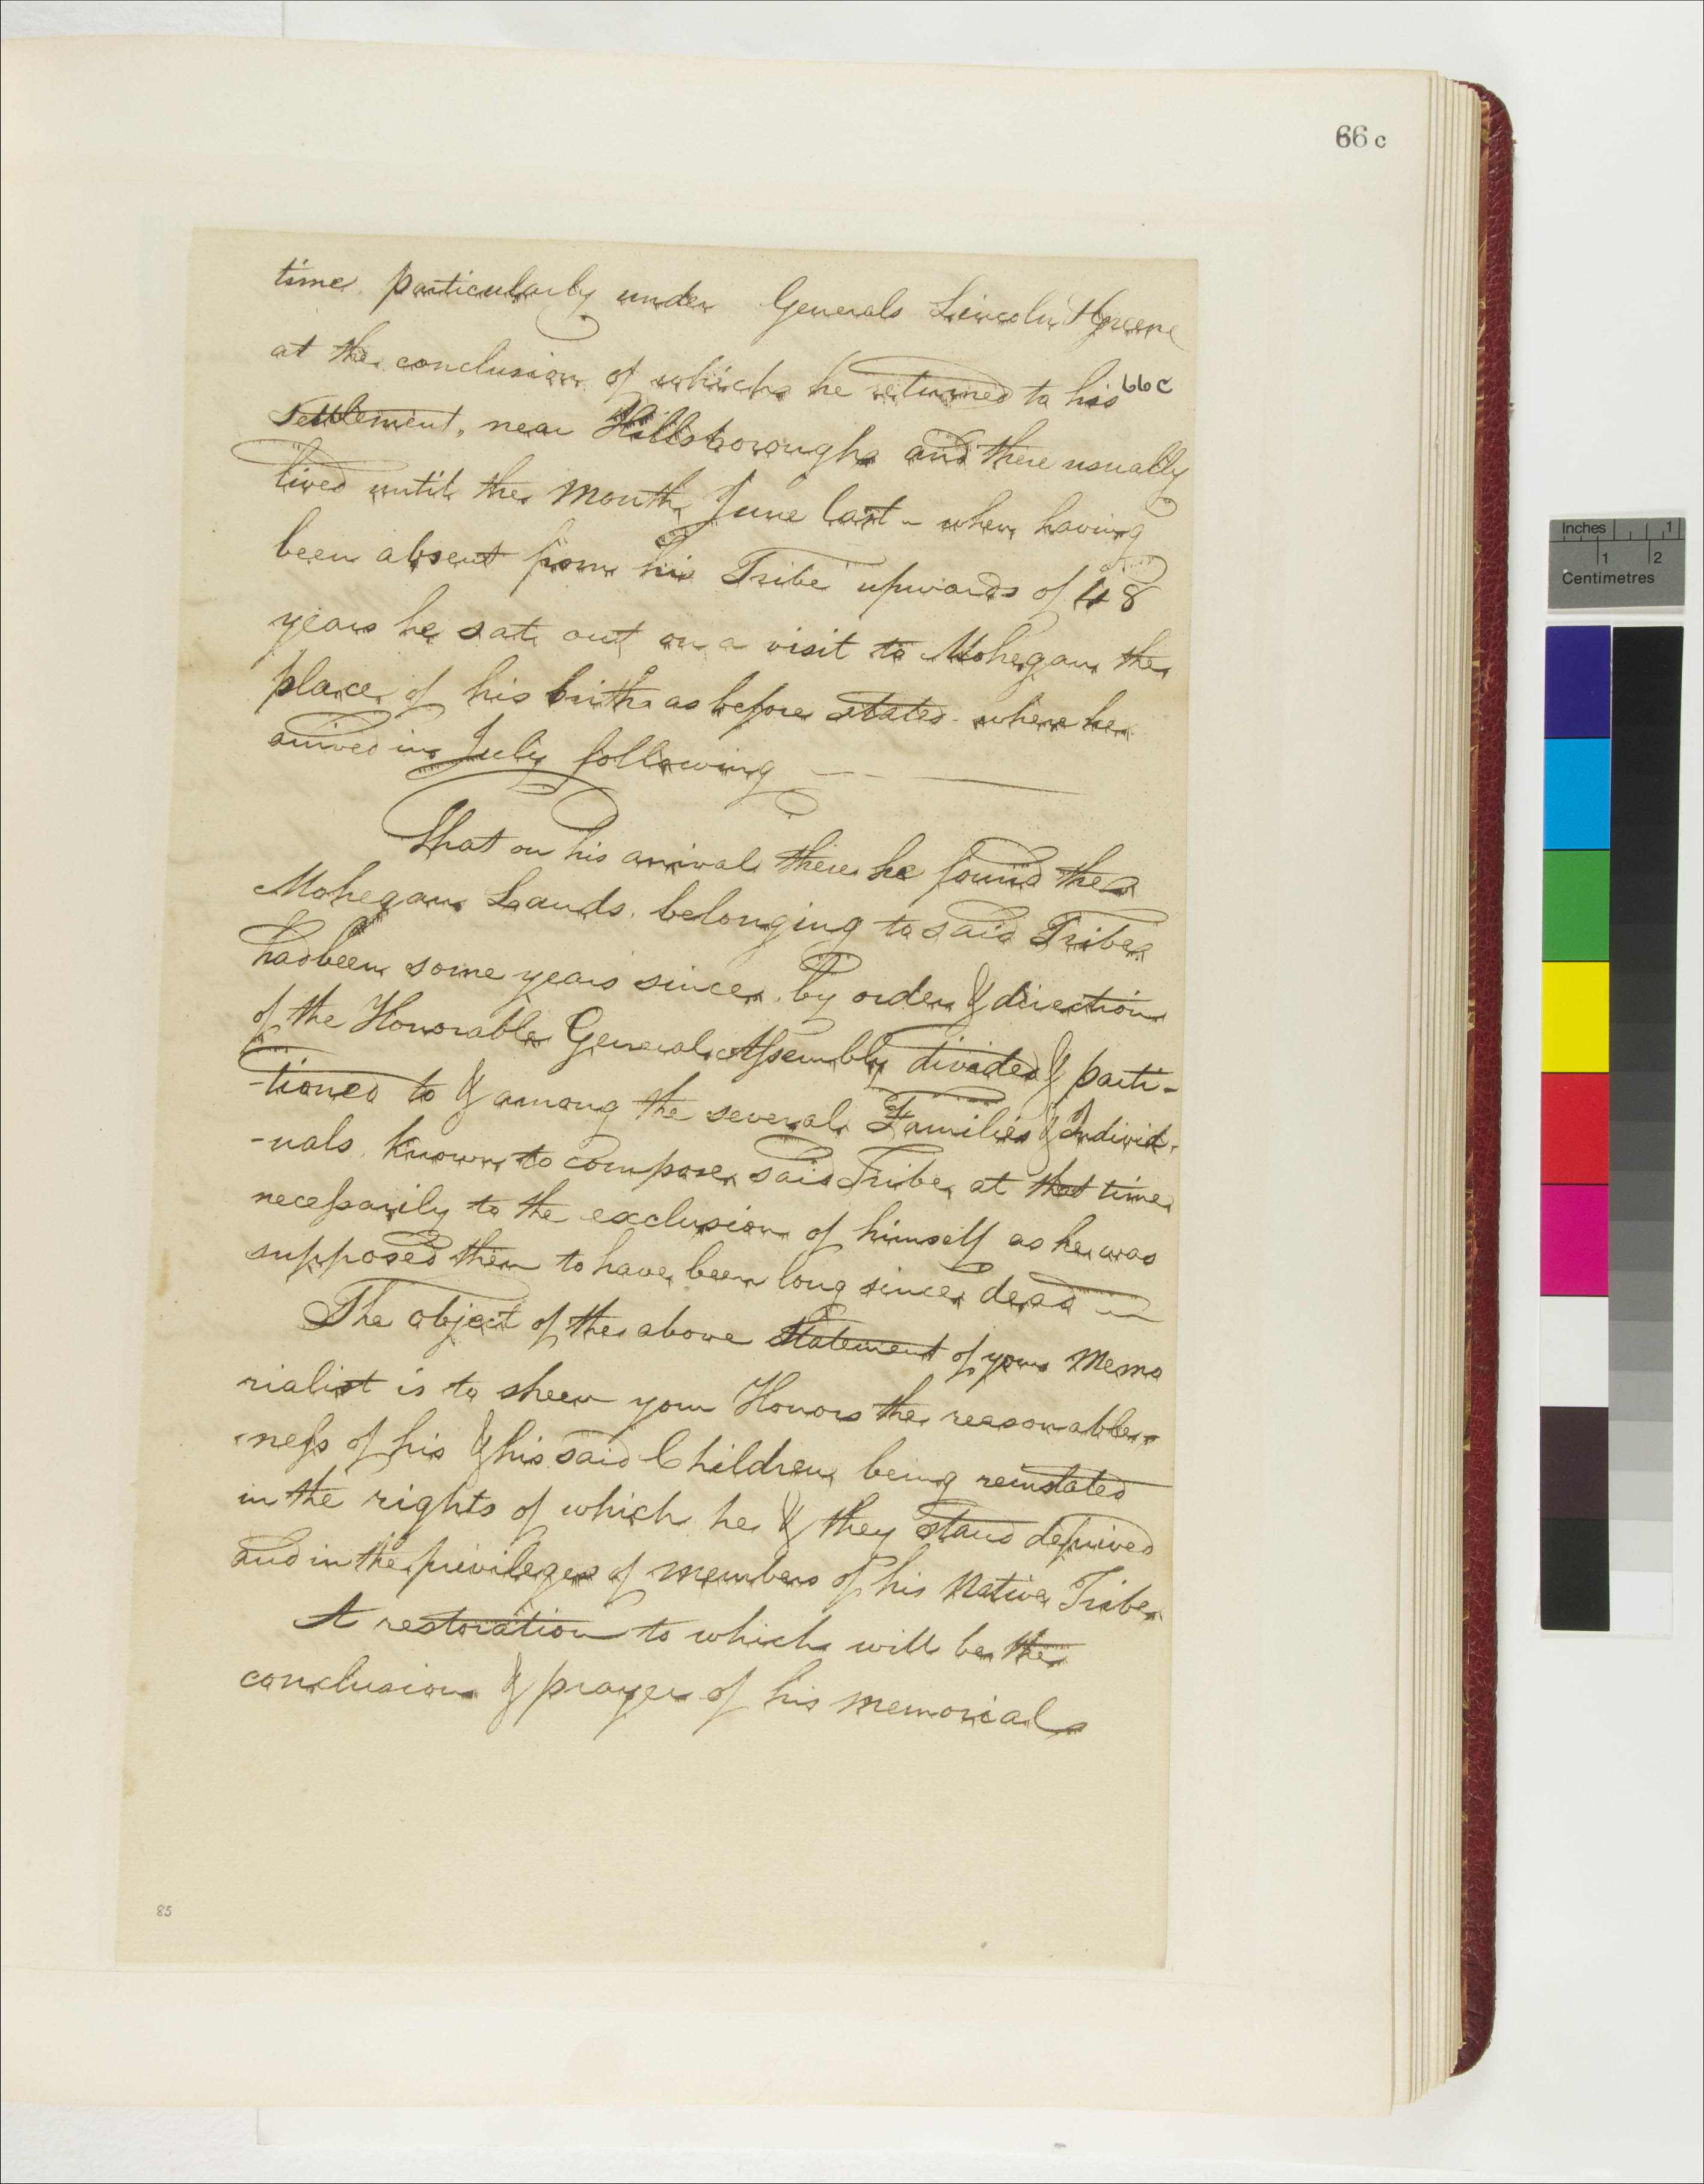 66 c
time particularly under Generals Lincoln & Greene
at the conclusion of which he returned to his
66c
Settlement, near Hillsborough and there usually
lived until the month June last - when having
been absent from his Tribe upwards of 48
years he sat out on a visit to Mohegan the
place of his birth as before stated - where he
arived in July following
That on his arrival there he found the
Mohegan Lands, belonging to said Tribe
had been some years since, by order & direction
of the Honorable General Assembly divided & parti-
-tioned to & among the several Families & Individ-
-uals, known to compose said Tribe at that time
necessarily to the exclusion of himself as he was
supposed then to have been long since dead
The object of the above Statement of your Memo
rialist is to shew your Honors the reasonable-
-ness of his & his said Children being reinstated
in the rights of which he & they stand deprived
and in the privileges of members of his Native Tribe
A restoration to which will be the
conclusion & prayer of his memorial
85
Inches
1
1
2
Centimetres